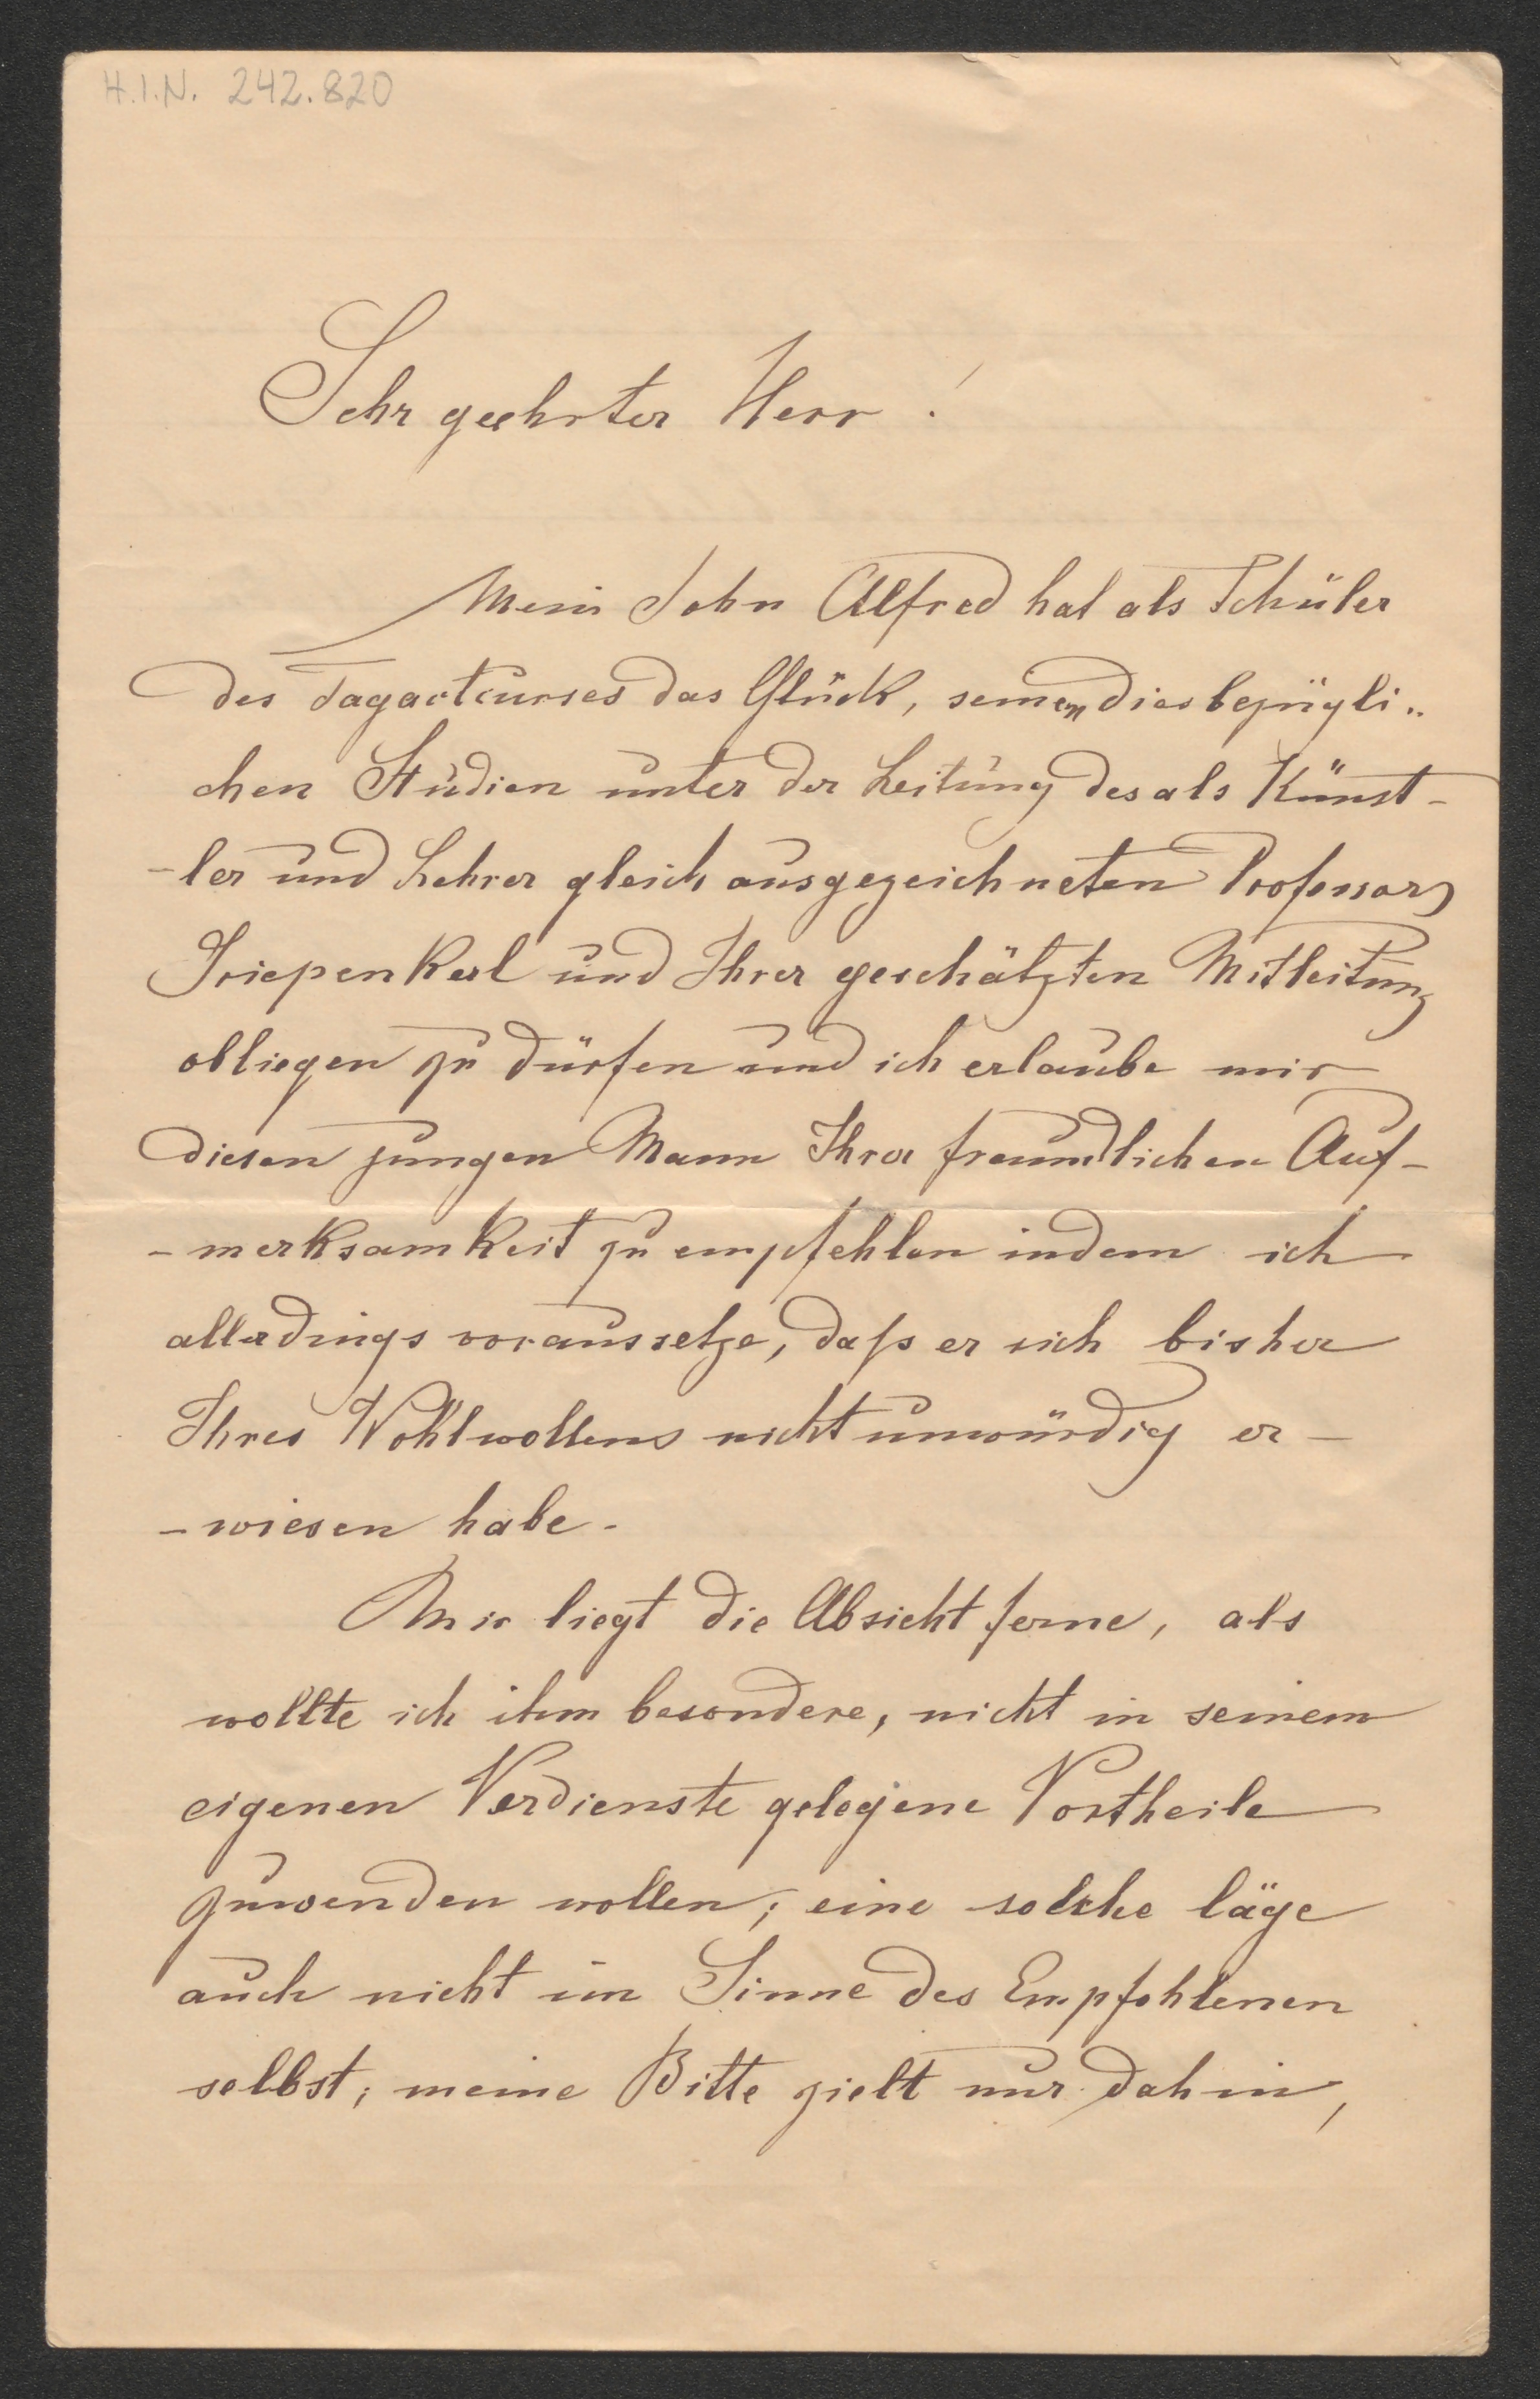 H.I.N. 242.820
Sehr geehrter Herr!
Mein Sohn Alfred hat als Schüler
des Tagactcurses das Glück, seinen diesbezügli„
chen Studien unter der Leitung des als Künst-
-ler und Lehrer gleich ausgezeichneten Professors
Griepenkerl und Ihrer geschätzten Mitleitung
obliegen zu dürfen und ich erlaube mir
diesen jungen Mann Ihrer freundlichen Auf-
-merksamkeit zu empfehlen indem ich
allerdings voraussetze, daß er sich bisher
Ihres Wohlwollens nicht unwürdig er-
-wiesen habe.
Mir liegt die Absicht ferne, als
wollte ich ihm besondere, nicht in seinem
eigenen Verdienste gelegene Vortheile
zuwenden wollen; eine solche läge
auch nicht im Sinne des Empfohlenen
selbst; meine Bitte zielt nur dahin,